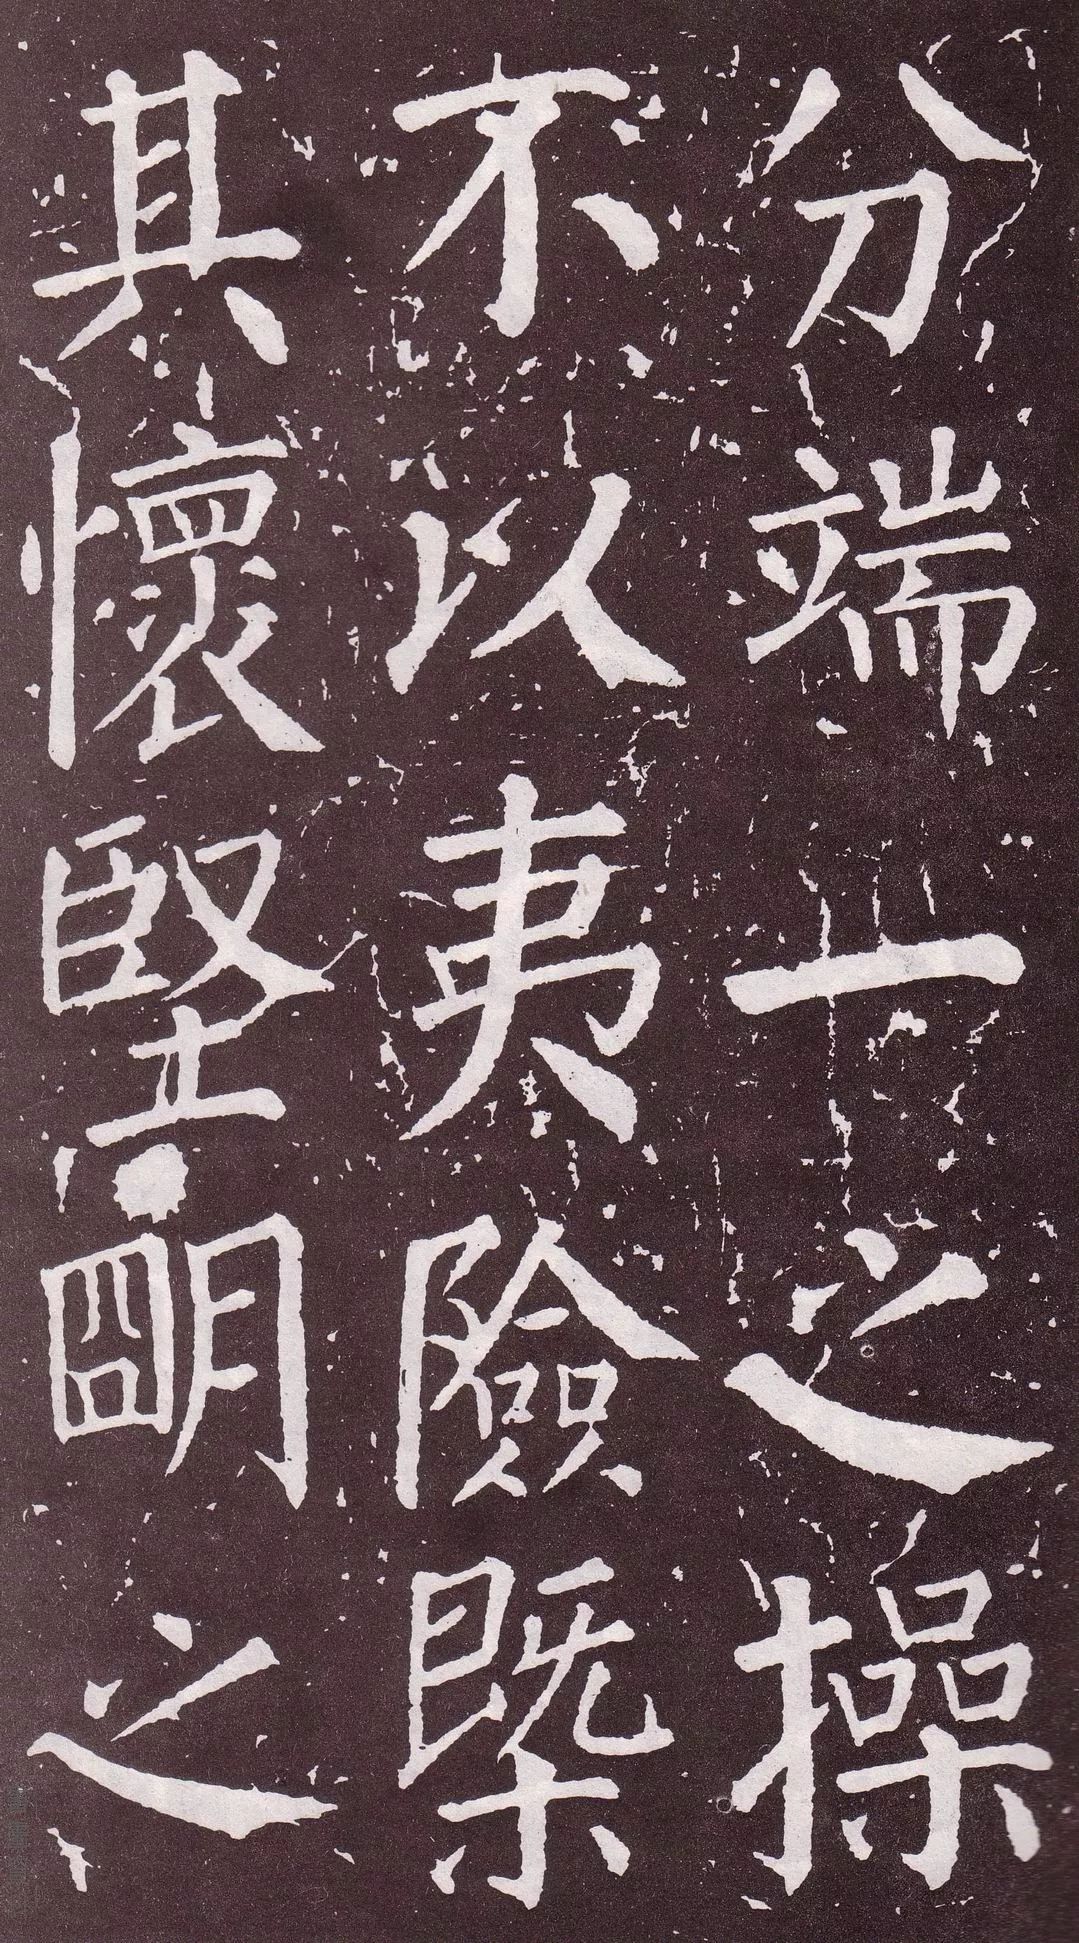 分端一之操
不以夷險槩
其懷堅朙之